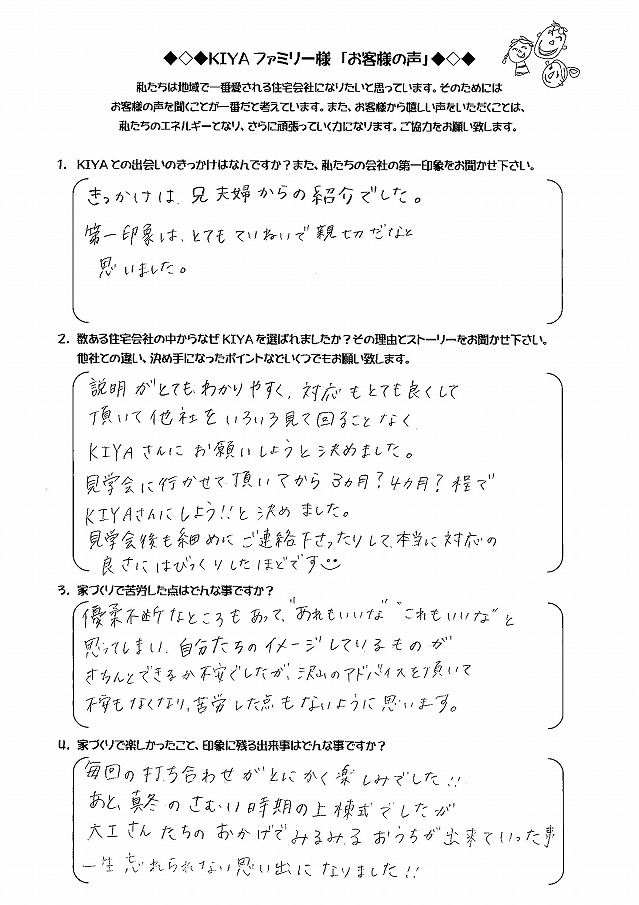 ◆◇◆KIYAファミリー様「お客様の声」◆◇◆
私たちは地域で一番愛される住宅会社になりたいと思っています。そのためには
お客様の声を聞くことが一番だと考えています。また、お客様から嬉しい声をいただくことは、
私たちのエネルギーとなり、さらに頑張っていく力になります。ご協力をお願い致します。
1. KIYAとの出会いのきっかけはなんですか？また、私たちの会社の第一印象をお聞かせ下さい。
きっかけは、兄夫婦からの紹介でした。
第一印象は、とてもていねいで親切だなと
思いました。
2. 数ある住宅会社の中からなぜKIYAを選ばれましたか？その理由とストーリーをお聞かせ下さい。
他社との違い、決め手になったポイントなどいくつでもお願い致します。
説明がとてもわかりやすく、対応もとても良くして
頂いて他社をいろいろ見て回ることなく
KIYAさんにお願いしようと決めました。
見学会に行かせて頂いてから3ヵ月？4ヵ月？程で
KIYAさんにしよう!!と決めました。
見学会後も細めにご連絡下さったりして、本当に対応の
良さにはびっくりしたほどです
3. 家づくりで苦労した点はどんな事ですか？
優柔不断なところもあって、"あれもいいな" "これもいいな"と
思ってしまい、自分たちのイメージしているものが
きちんとできるか不安でしたが、沢山のアドバイスを頂いて
不安もなくなり、苦労した点もないように思います。
4. 家づくりで楽しかったこと、印象に残る出来事はどんな事ですか？
毎回の打ち合わせがとにかく楽しみでした!!
あと、真冬のさむい時期の上棟式でしたが
大工さんたちのおかげでみるみるおうちが出来ていった事
一生忘れられない思い出になりました!!